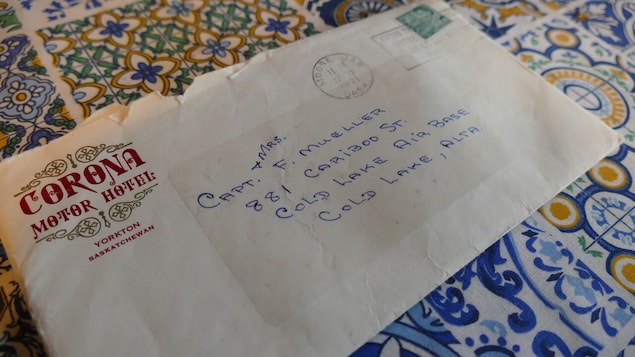 CORONA
MOTOR HOTEL
YORKTON
SASKATCHEWAN
+ MRS.
CAPT. F. MUELLER
881 CARIBOO ST.
COLD LAKE AIR BASE
COLD LAKE, ALTA